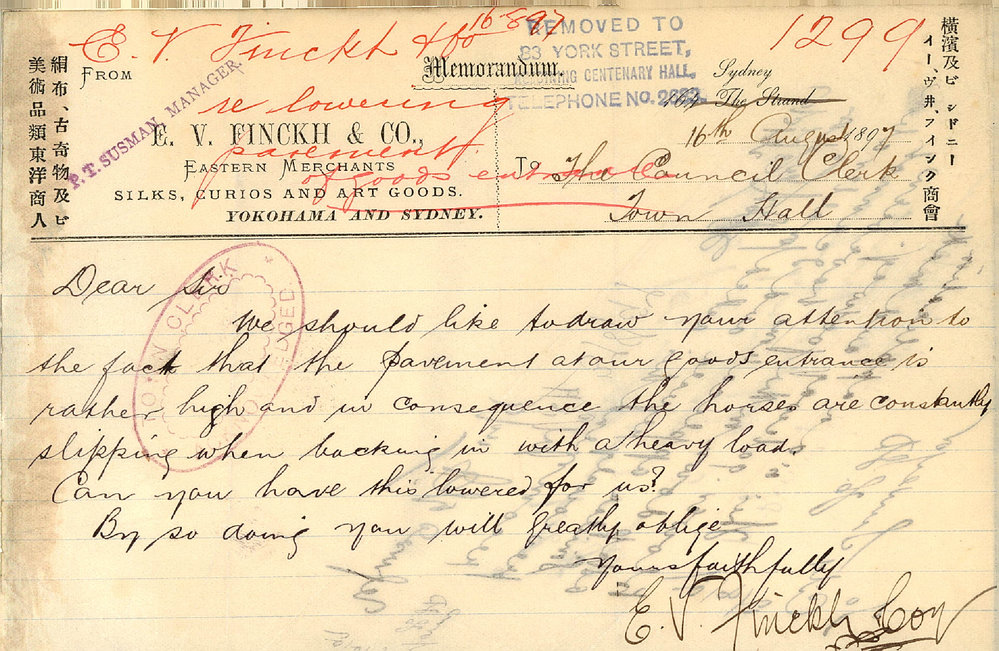 E. V. Finckh & Co 16-8-97
1299
REMOVED TO
83 YORK STREET,
ADJOINING CENTENARY HALL,
TELEPHONE No.
FROM
Memorandum.
Sydney
164 The Strand
16th August 1897
re lowering
pavement
of goods entrance
P. T. SUSMAN, MANAGER.
E. V. FINCKH & CO.,
EASTERN MERCHANTS
SILKS, CURIOS AND ART GOODS.
YOKOHAMA AND SYDNEY.
To The Council Clerk
Town Hall
絹布、古奇物及ビ
美術品類東洋商人
橫濱及ビシドニー
イー、ヴ井、フインク商會
TOWN CLERK
Dear Sir
We should like to draw your attention to
the fact that the pavement at our goods entrance is
rather high and in consequence the horses are constantly
slipping when backing in with a heavy load.
Can you have this lowered for us?
By so doing you will greatly oblige
Yours faithfully
E. V. Finckh & Coy